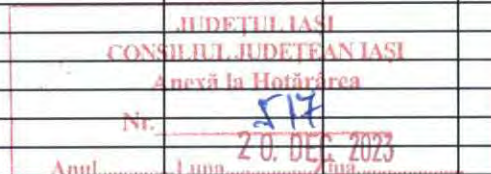 JUDEŢUL IAŞI
CONSILIUL JUDEŢEAN IAŞI
Anexă la Hotărârea
Nr. 517
20. DEC. 2023
Anul............Luna............Ziua............